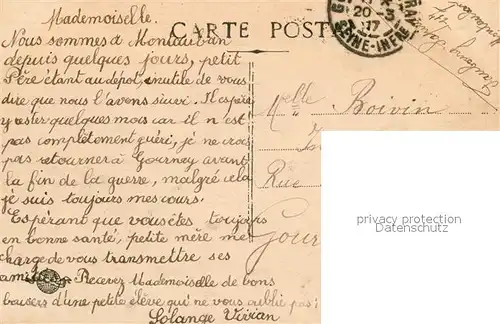 Mademoiselle.
CARTE POST
Nous sommes à Montauban
depuis quelques jours, petit
Père étant au dépôt, inutile de vous
dire que nous l'avons suivi. Il espère
y rester quelques mois car il n'est
pas complètement guéri, je ne crois
pas retourner à Gournay avant
la fin de la guerre, malgré cela
je suis toujours mes cours.
Espérant que vous êtes toujours
en bonne santé, petite mère me
charge de vous transmettre ses
amitiés. Recevez Mademoiselle de bons
baisers d'une petite élève qui ne vous oublie pas.
Solange Vivian
20-5
17
SEINE-INFRE
Melle Boivin
Rue
Gour
privacy protection
Datenschutz